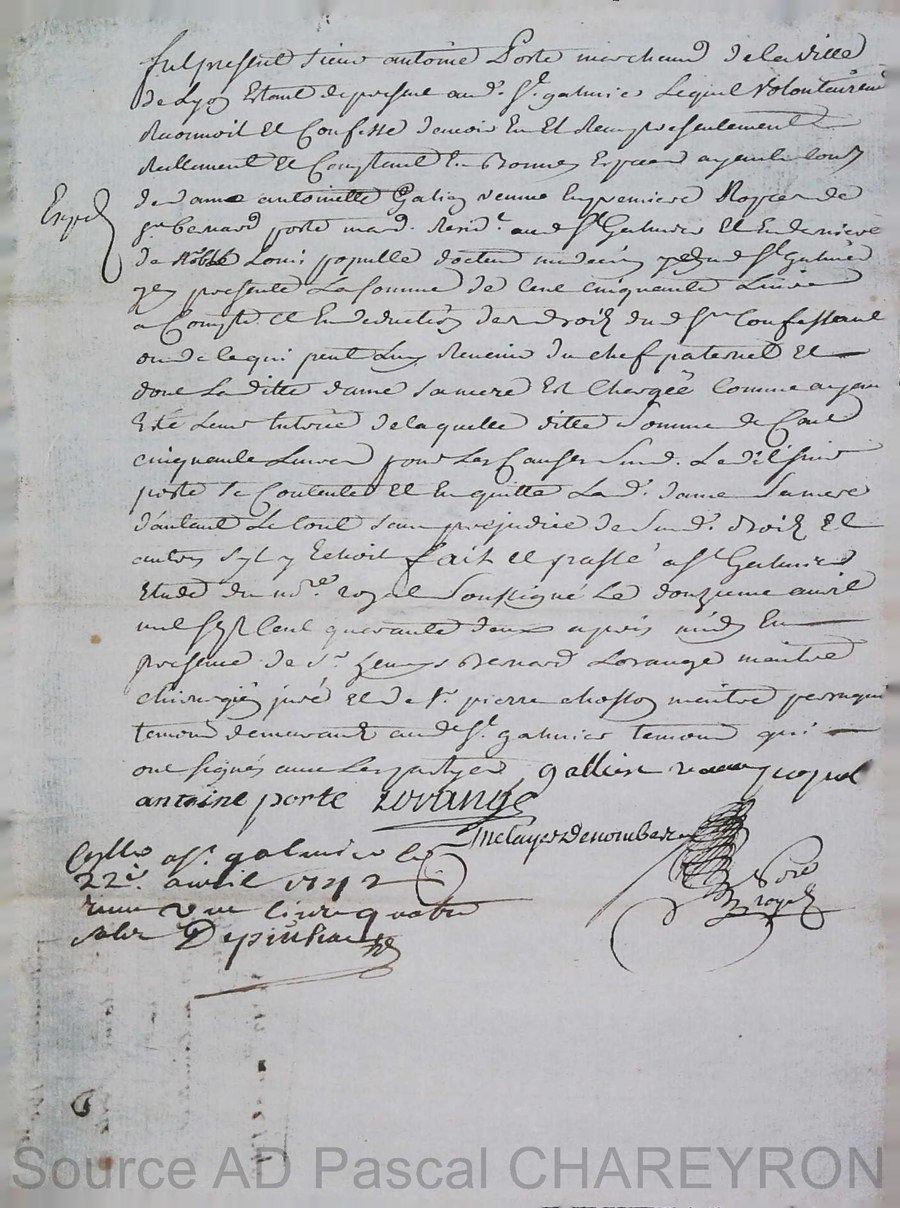 fut present sieur antoine Porte marchand de la ville
de Lyon Estant de presant aud. St. galmier Lequel volontairemt
Reconnoit Et Confesse d'avoir Eu Et Receu presentement
Reellement Et Comptant En Bonnes Especes ayant cours
de dame antoinette Galien veuve En premiere Nopces de
Sr bernard porte mard. Resid.t aud St Galmier Et En derniere
de Noble Louis populle docteur medecin aud St Galmier
presente La somme de Cent cinquante Livres
a Compte Et En deduction des droits dud Sr Confessant
ou de la qui peut Luy Revenir du chef paternel Et
dont La ditte dame sa mere Est Chargée Comme ayant
Eté Leur tutrice de laquelle ditte Somme de Cent
cinquante Livres pour Les Causes Susd. Le dit Sieur
porte se Contente Et En quitte La d. dame Sa mere
d'autant Le tout sans prejudice de Susd. droits Et
autres syl y Echoit fait et passé a St Galmier
Etude du no.re royal Soussigné Le douzieme avril
mil sept Cent quarante deux apres midy En
presence de Sr. Bernard Lorange maitre
chirurgien juré Et de Sr. pierre chosson maitre perruqui
temoins demeurants aud St. galmier temoins qui
ont signés avec Les partyes gallien veuve popul
antoine porte Lorange
Denombard
Nore
Royal
Cllé a St. galmier le
22e. avril 1742
receu une livre quatre
sols Depinhac
6
Source AD Pascal CHAREYRON